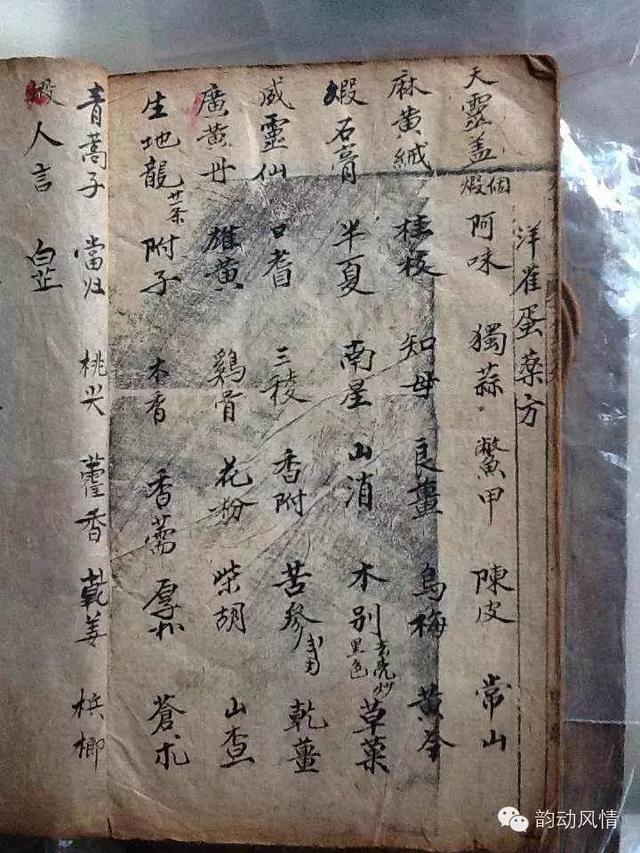 洋雀蛋藥方
天靈盖煅個 阿味 獨蒜 鱉甲 陳皮 常山
麻黄絨 桂枝 知母 良薑 烏梅 黄芩
煅石膏 半夏 南星 山消 木别去売炒黑色 草菓
威靈仙 口耆 三稜 香附 苦參 乾薑
廣黄丹 雄黄 鷄骨 花粉 柴胡 山查
生地龍廿条 附子 木香 香薷 厚朴 蒼术
青蒿子 當归 桃尖 藿香 乾姜 梹榔
人言 白芷
韵动风情